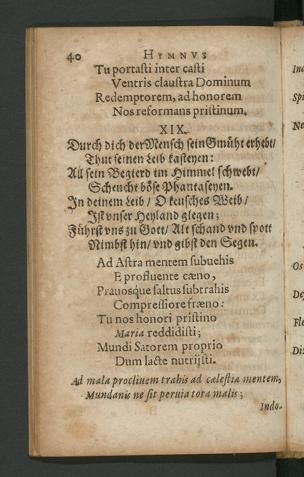 40 HYMNVS
Tu portasti inter casti
Ventris claustra Dominum
Redemptorem, ad honorem
Nos reformans pristinum.
XIX.
Durch dich der Mensch sein Gmüht erhebt/
Thut seinen Leib kasteyen:
All sein Begierd im Himmel schwebt/
Scheucht böse Phantaseyen.
In deinem Leib / O keusches Weib /
Ist vnser Heyland glegen;
Führst vns zu Gott / Alt schand vnd spott
Nimbst hin / vnd gibst den Segen.
Ad Astra mentem subuehis
E profluente cæno,
Prauosque saltus subtrahis
Compressiore fræno:
Tu nos honori pristino
Maria reddidisti;
Mundi Satorem proprio
Dum lacte nutrijsti.
Ad mala procliuem trahis ad cælestia mentem,
Mundanis ne sit peruia tota malis;
Indo-
Ne
Os
Fle